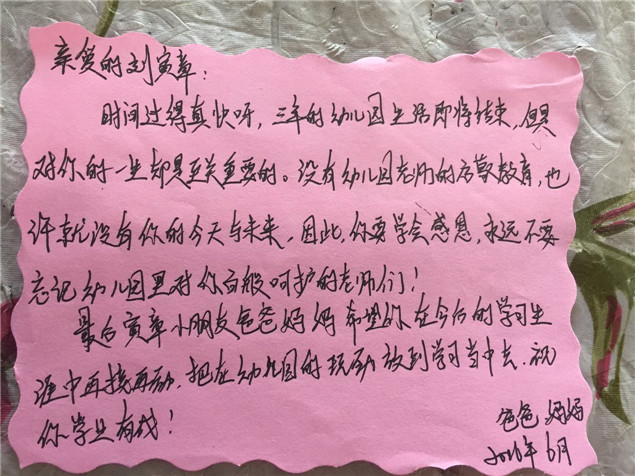 亲爱的刘寅章:
时间过得真快呀,三年的幼儿园生活即将结束,但
对你的一生却是至关重要的。没有幼儿园老师的启蒙教育,也
许就没有你的今天与未来,因此,你要学会感恩,永远不要
忘记幼儿园里对你百般呵护的老师们!
最后寅章小朋友爸爸妈妈希望你在今后的学习生
涯中再接再励,把在幼儿园的玩劲放到学习当中去,祝
你学业有成!
爸爸 妈妈
2016年6月